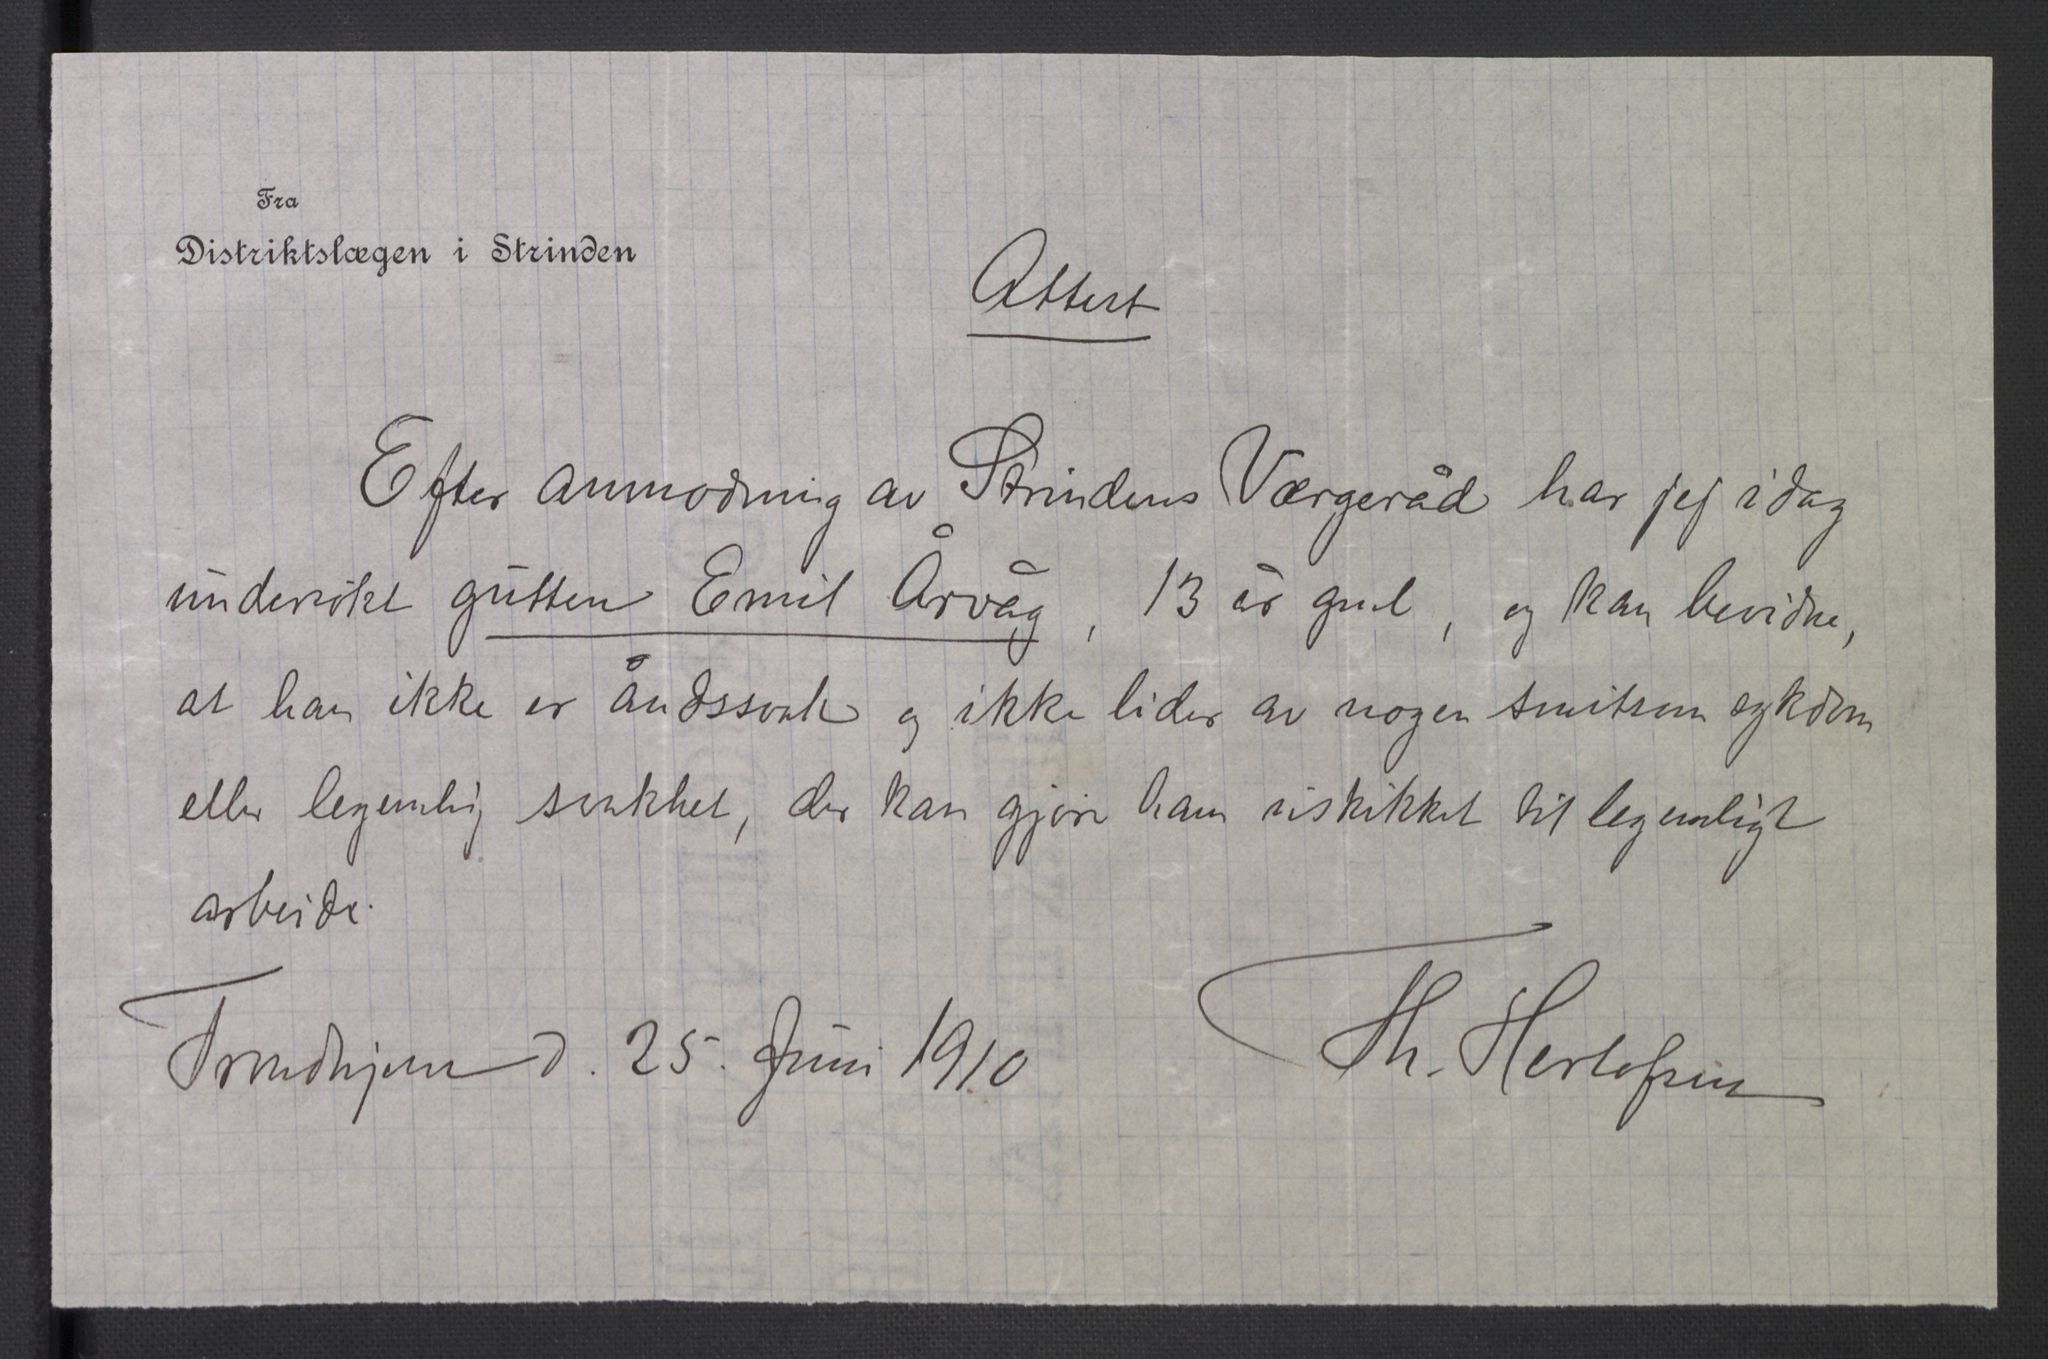 Fra
Distriktslægen i Strinden
Attest
Efter anmodning av Strindens Værgeråd har jeg idag
undersøkt gutten Emil Årvåg, 13 år gml, og kan bevidne,
at han ikke er åndssvak og ikke lider av nogen smitsom sykdom
eller legemlig svakhet, der kan gjøre ham uskikket til legemligt
arbeide.
Trondhjem d. 25. Juni 1910
Th. Herlofsen